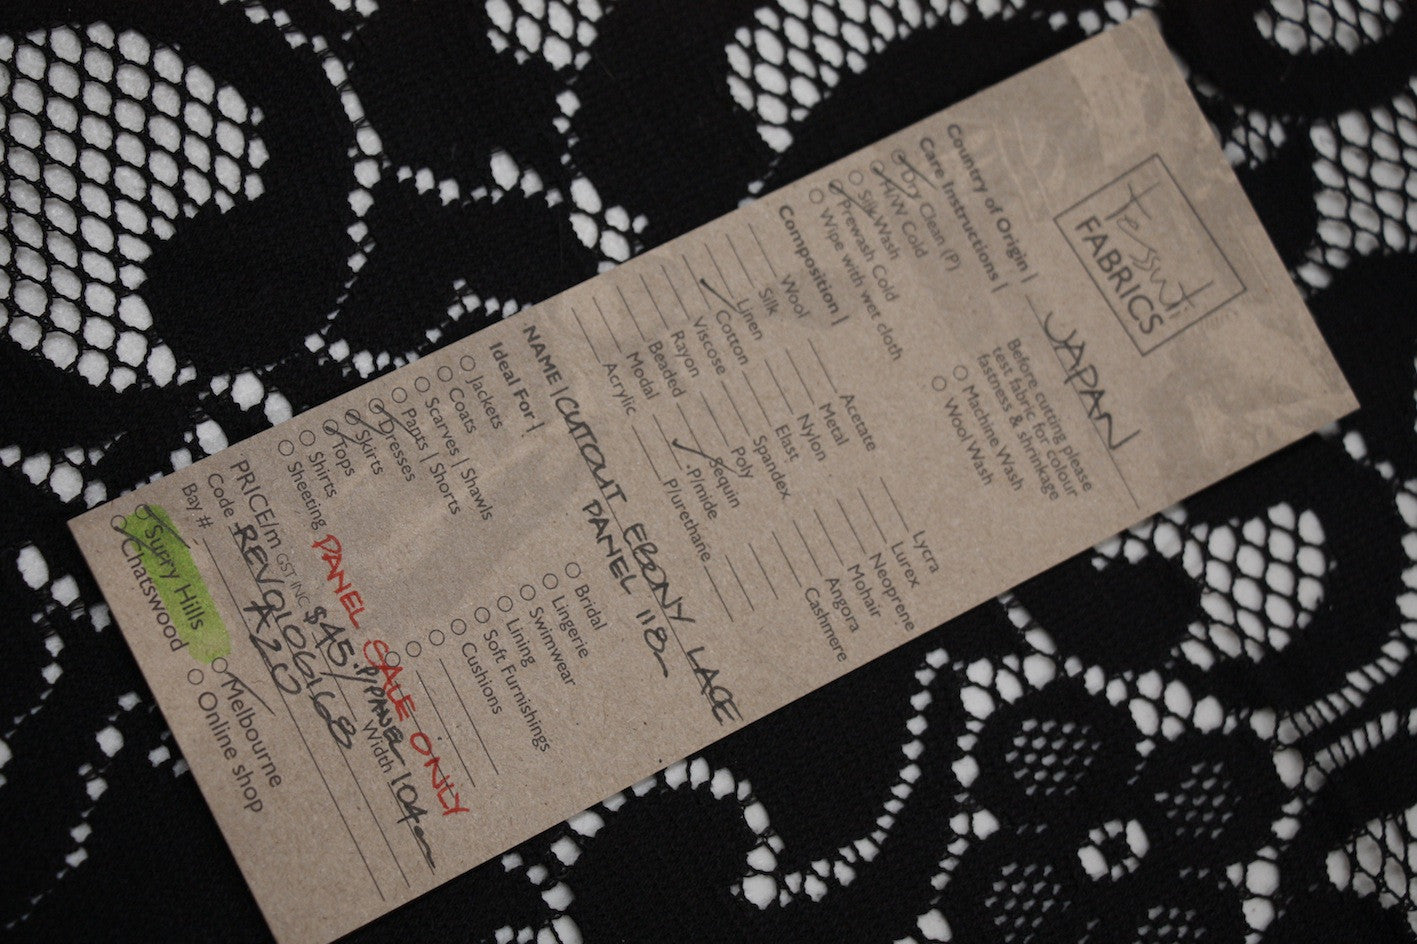 tessuti
FABRICS
Country of Origin | JAPAN
Care Instructions |
Dry Clean (P)
H/W Cold
Silk Wash
Prewash Cold
Wipe with wet cloth
Before cutting please
test fabric for colour
fastness & shrinkage
Machine Wash
Wool Wash
Composition |
Wool
Silk
Linen
Cotton
Viscose
Rayon
Beaded
Modal
Acrylic
Acetate
Metal
Nylon
Elast
Spandex
Poly
Sequin
P/mide
P/urethane
Lycra
Lurex
Neoprene
Mohair
Angora
Cashmere
NAME | CUTOUT EBONY LACE
PANEL 118c
Ideal For |
Jackets
Coats
Scarves | Shawls
Pants | Shorts
Dresses
Skirts
Tops
Shirts
Sheeting
Bridal
Lingerie
Swimwear
Lining
Soft Furnishings
Cushions
PANEL SALE ONLY
PRICE/m GST INC $45./P/PANEL Width 104c
Code REV010G168
Bay # A20
Surry Hills
Chatswood
Melbourne
Online shop